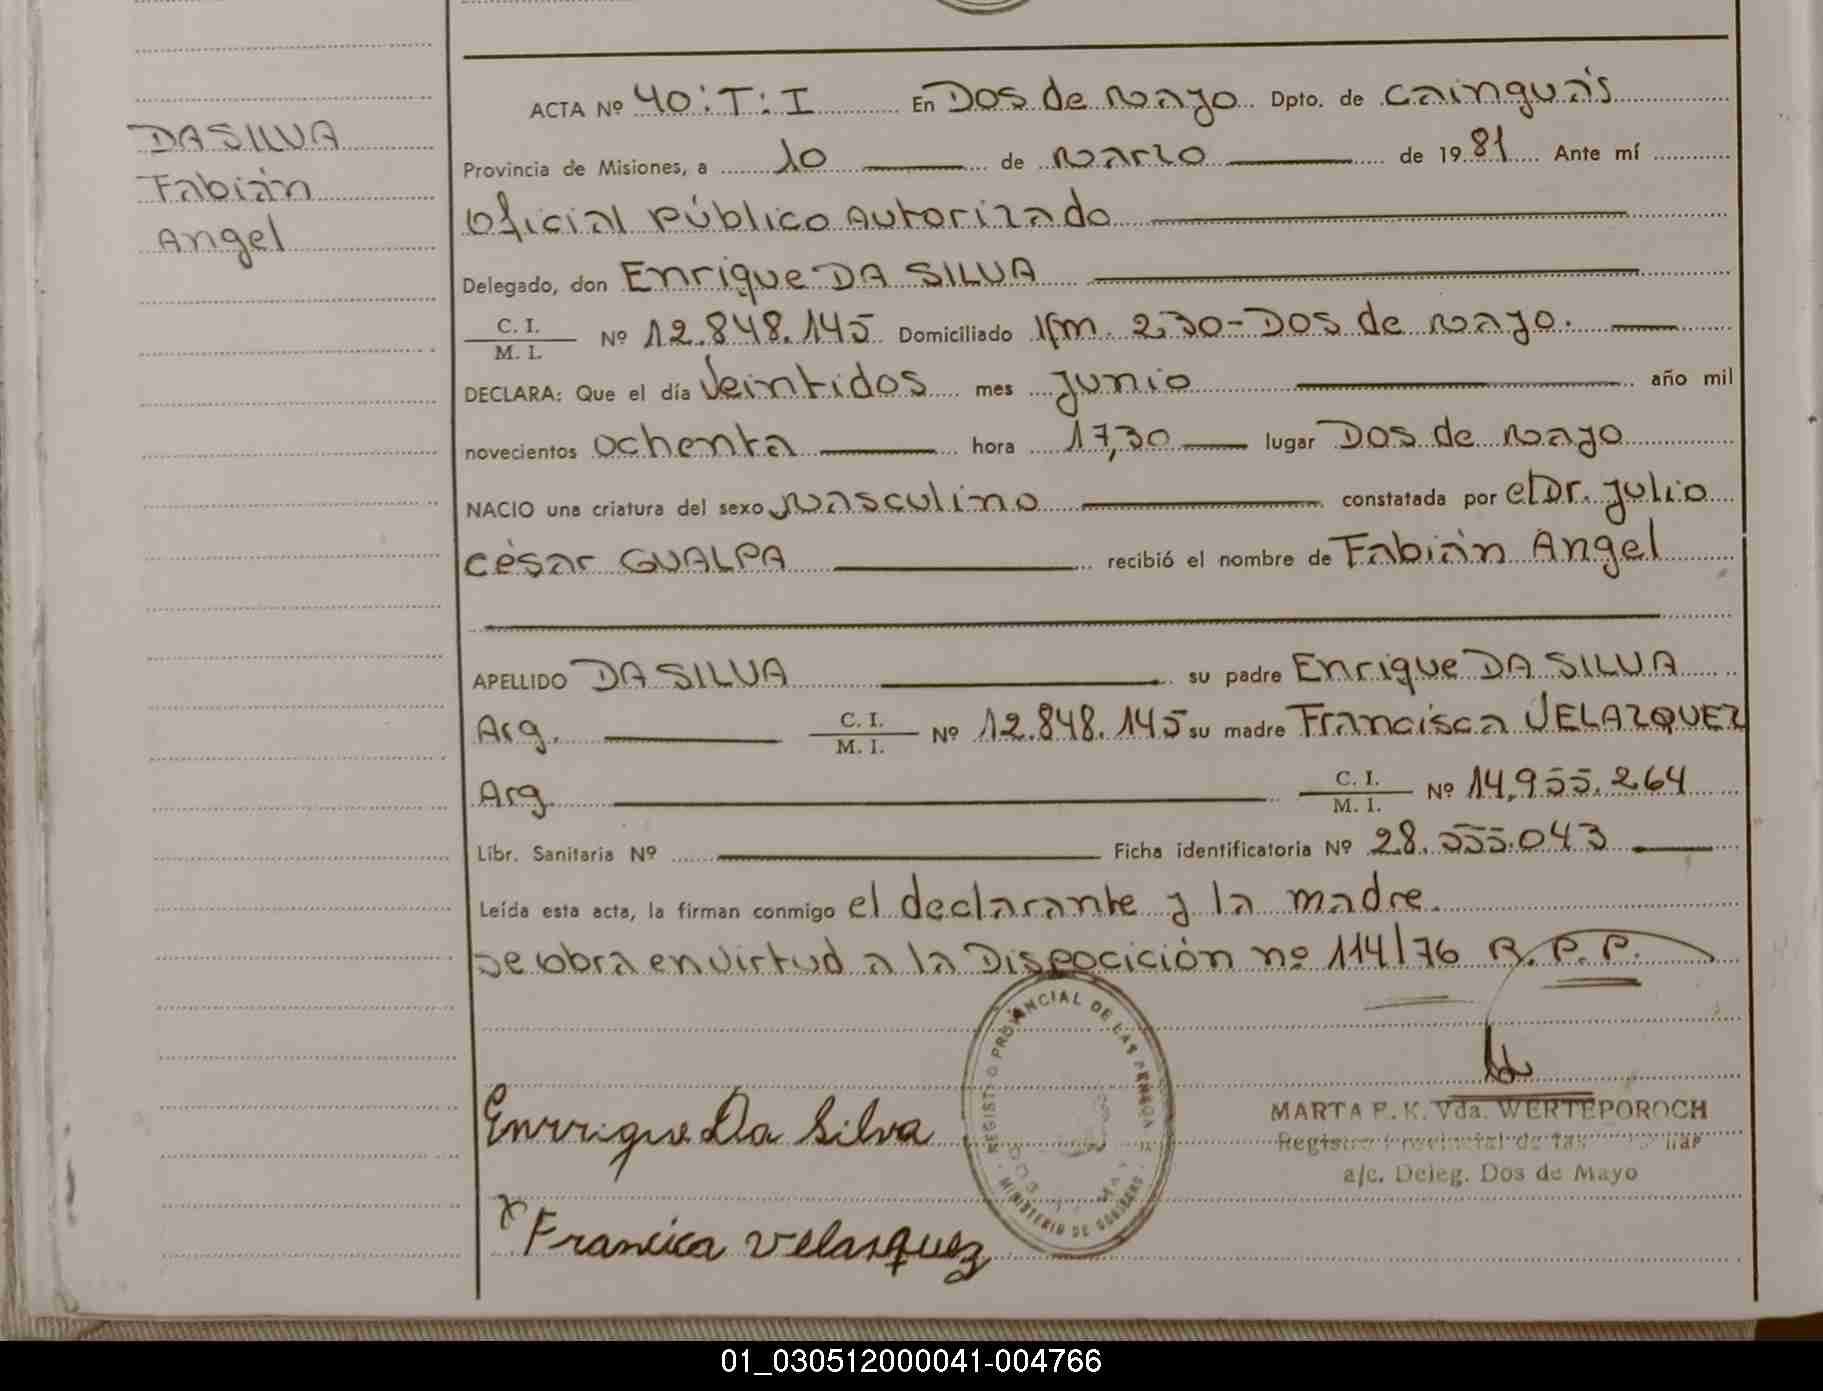 DA SILVA
Fabián
Angel
ACTA Nº 40:T:I En Dos de Mayo Dpto. de Cainguás
Provincia de Misiones, a 10 de Marzo de 1981 Ante mí
Oficial Público Autorizado
Delegado, don Enrique DA SILVA
C. I.
M. I. Nº 12.848.145 Domiciliado Km. 230-Dos de Mayo.
DECLARA: Que el día Veintidos mes Junio año mil
novecientos Ochenta hora 17,30 lugar Dos de Mayo
NACIO una criatura del sexo Masculino constatada por el Dr. Julio
César GUALPA recibió el nombre de Fabián Angel
APELLIDO DA SILVA su padre Enrique DA SILVA
Arg. C. I. M. I. Nº 12.848.145 su madre Francisca VELAZQUEZ
Arg. C. I. M. I. Nº 14,955.264
Libr. Sanitaria Nº Ficha identificatoria Nº 28.555.043
Leída esta acta, la firman conmigo el declarante y la madre.
Se obra en virtud a la Disposición nº 114/76 R.P.P.
REGISTRO PROVINCIAL DE LAS PERSONAS
MINISTERIO DE GOBIERNO
Enrrique Da Silva
MARTA P. K. Vda. WERTEPOROCH
Registro Provincial de las
a/c. Deleg. Dos de Mayo
x Francica Velasquez
01_030512000041-004766